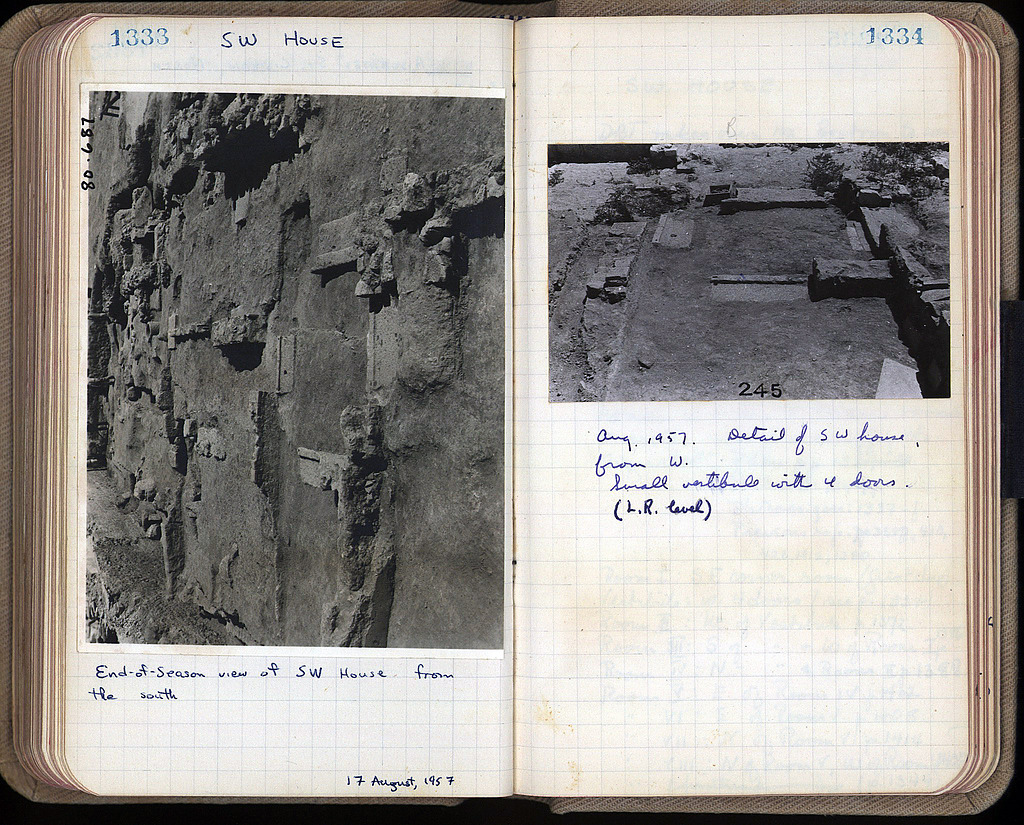 1333 SW House
80.687
End-of-Season view of SW House from
the south
17 August, 1957
1334
B
245
Aug. 1957. Detail of SW house,
from W.
Small vestibule with 4 doors.
(L.R. level)